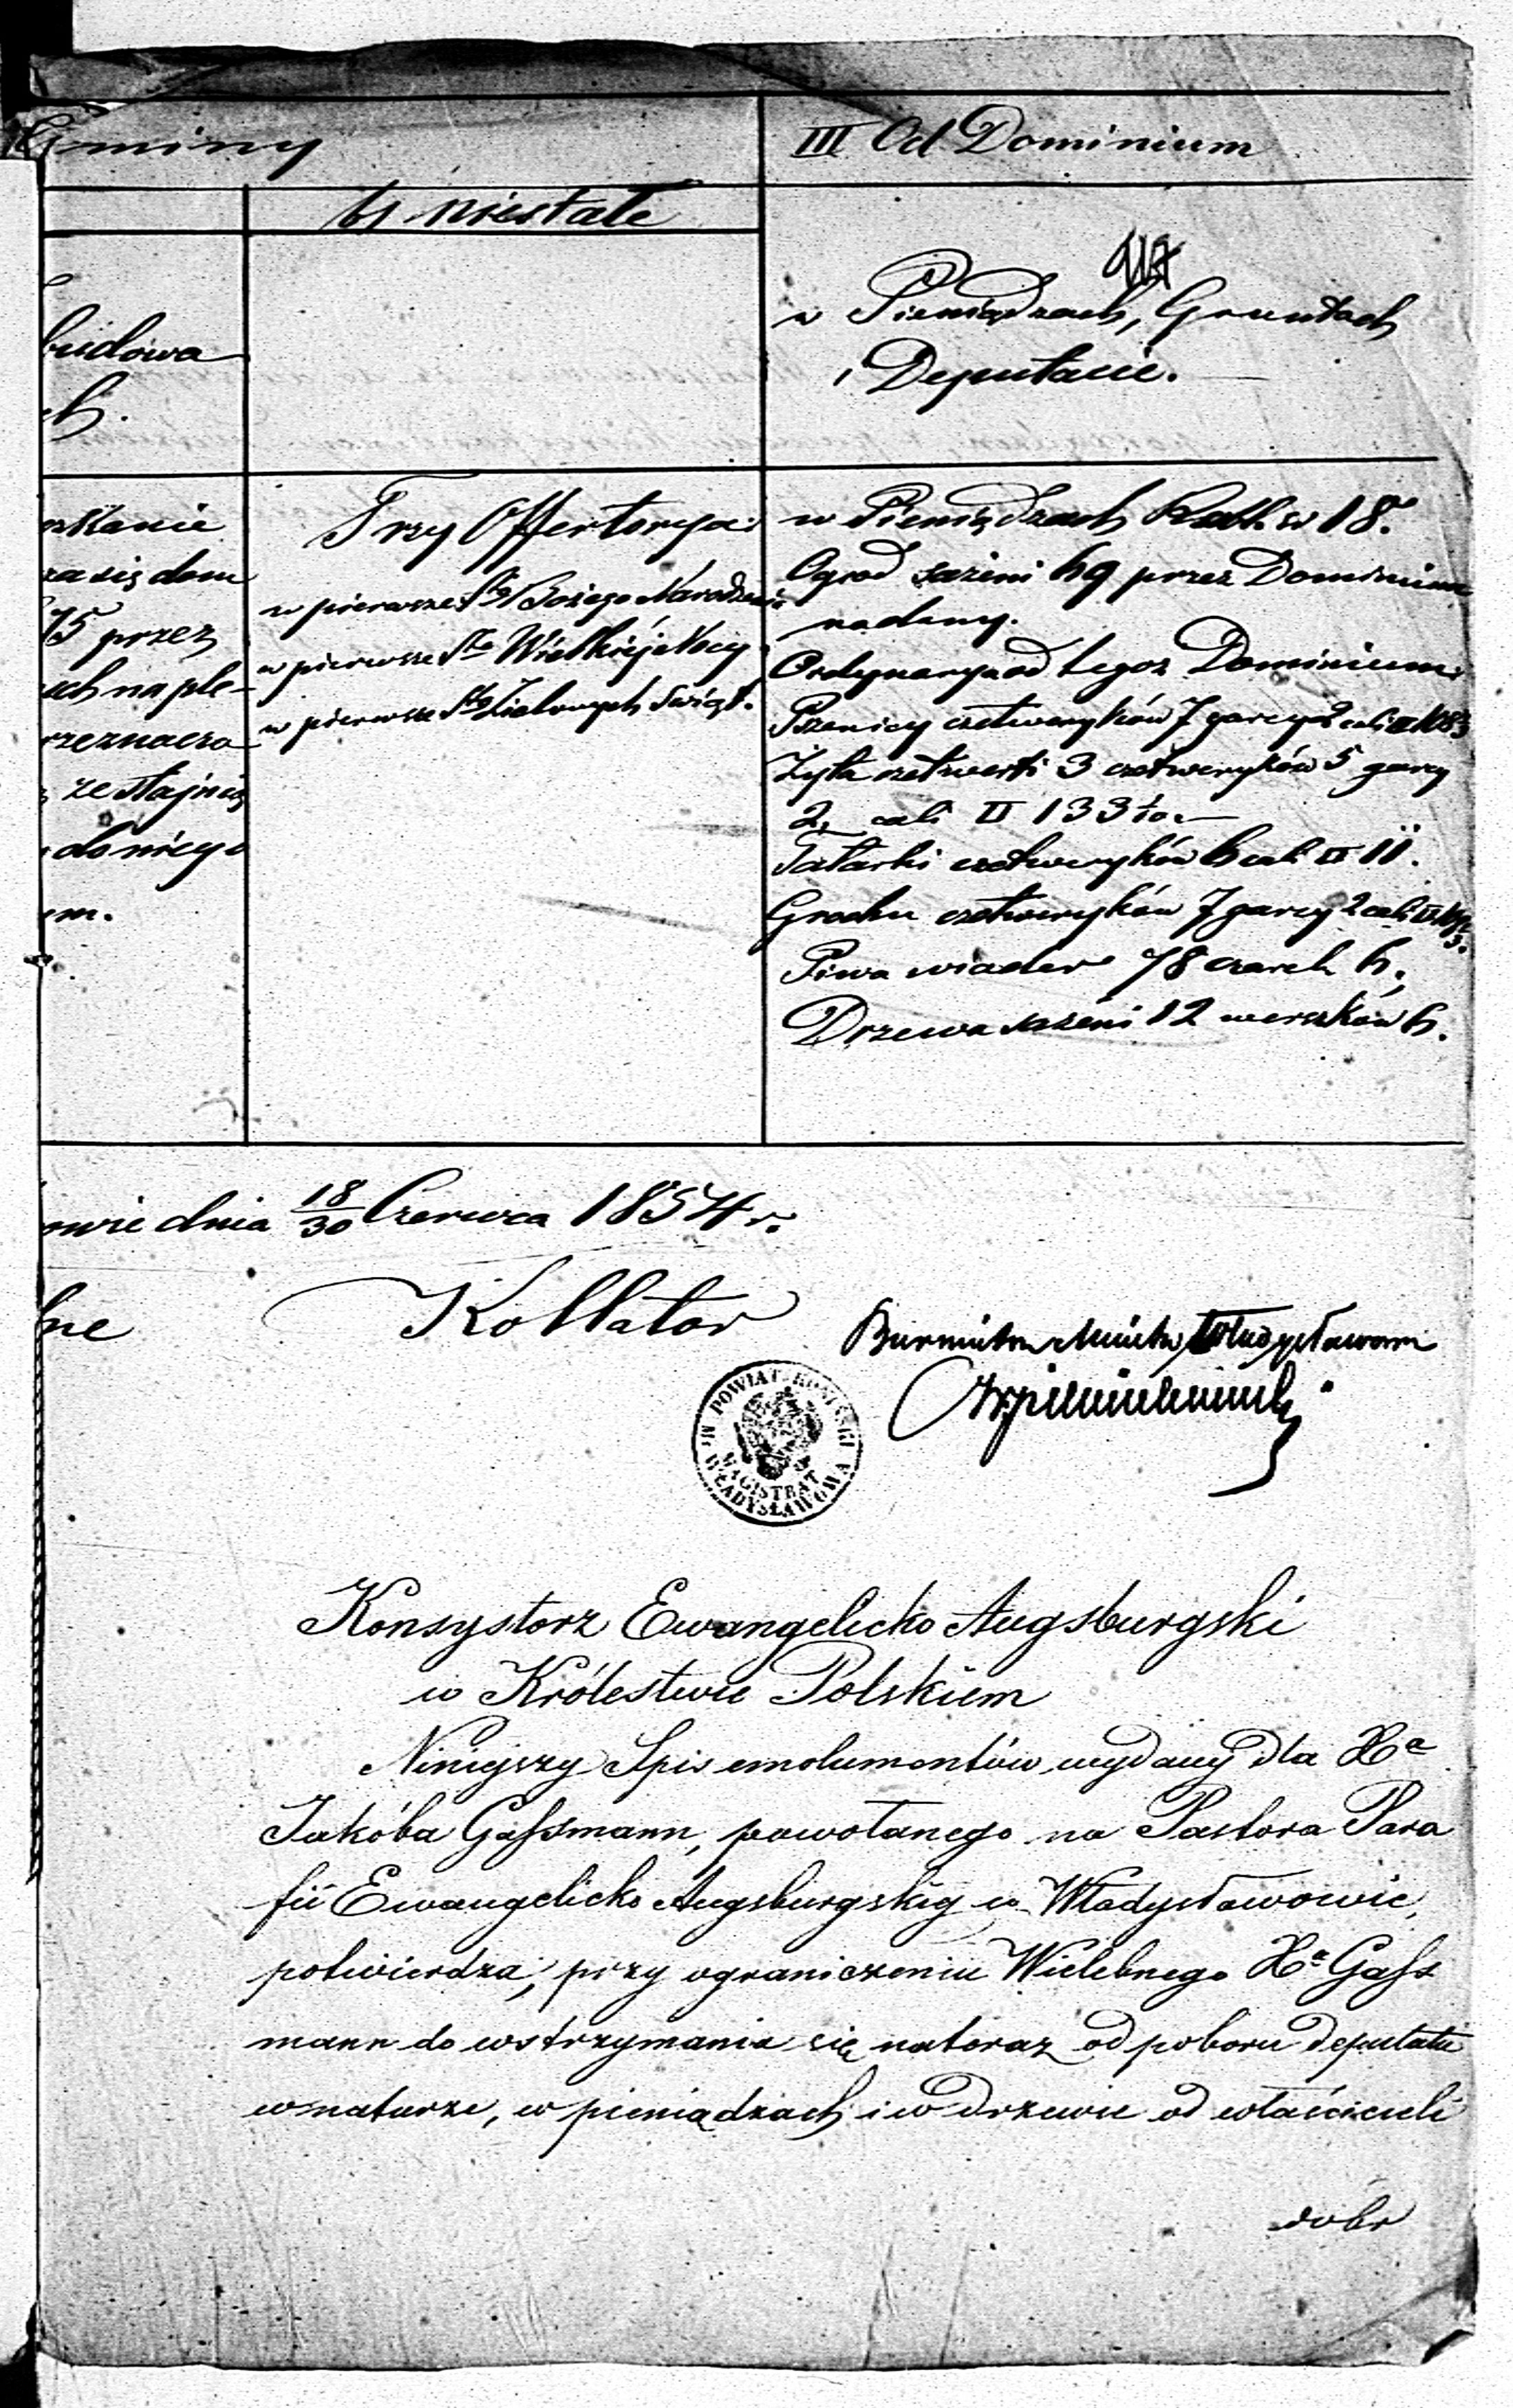 Gminy
III Od Dominium
b, niestałe
w Pieniądzach, Gruntach
i Deputacie.
budowa
ch.
Trzy Offertorya:
w pierwsze Sto Bożego Narodzenia
w pierwsze Sto Wielkiéj Nocy
w pierwsze Sto Zielonych Świąt.
w Pieniądzach 18.
Ogrod sażeni 69 przez Dominium
nadany.
Ordynarya od tegoż Dominium
Pszenicy czetweryków 7 garcy 2 cali
Żyta czetwerti 3 czetweryków 5 garcy
2, cali □ 133
Tatarki czetweryków 6 cali □ 11.
Grochu czetweryków 7 garcy 2 cali □
Piwa wiader 78 czarek 6,
Drzewa sażeni 12 werszków 6.
szkanie
za się dom
75 przez
ach na ple-
rzeznacza
ze stajnią
do niego
em.
owie dnia 18/30 Czerwca 1854 r.
lne
Kollator
Burmistrz Miasta Władysławowa
POWIAT KONIŃSKI
MAGISTRAT
M. WŁADYSŁAWOWA
Konsystorz Ewangelicko Augsburgski
w Królestwie Polskiem
Niniejszy Spis emolumentów wydany dla Xa
Jakóba Gassmann, powołanego na Pastora Para
fii Ewangelicko Augsburgskiej w Władysławowie,
potwierdza, przy ograniczeniu Wielebnego Xa Gass
mann do wstrzymania się nateraz od poboru deputatu
w naturze, w pieniądzach i w drzewie od właścicieli
dóbr